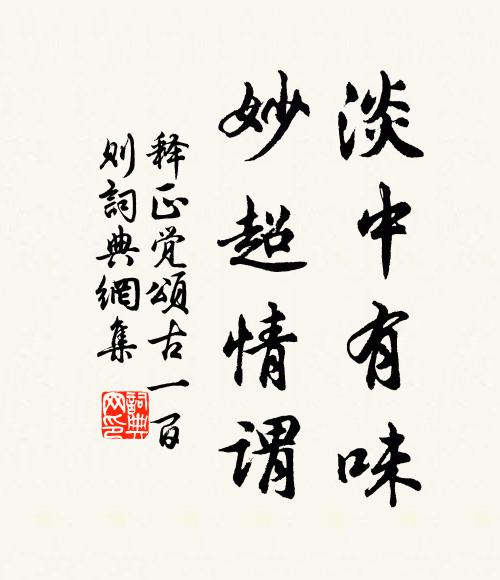 淡中有味
妙超情谓
释正觉颂古一百
则詞典網集
詞典
网印